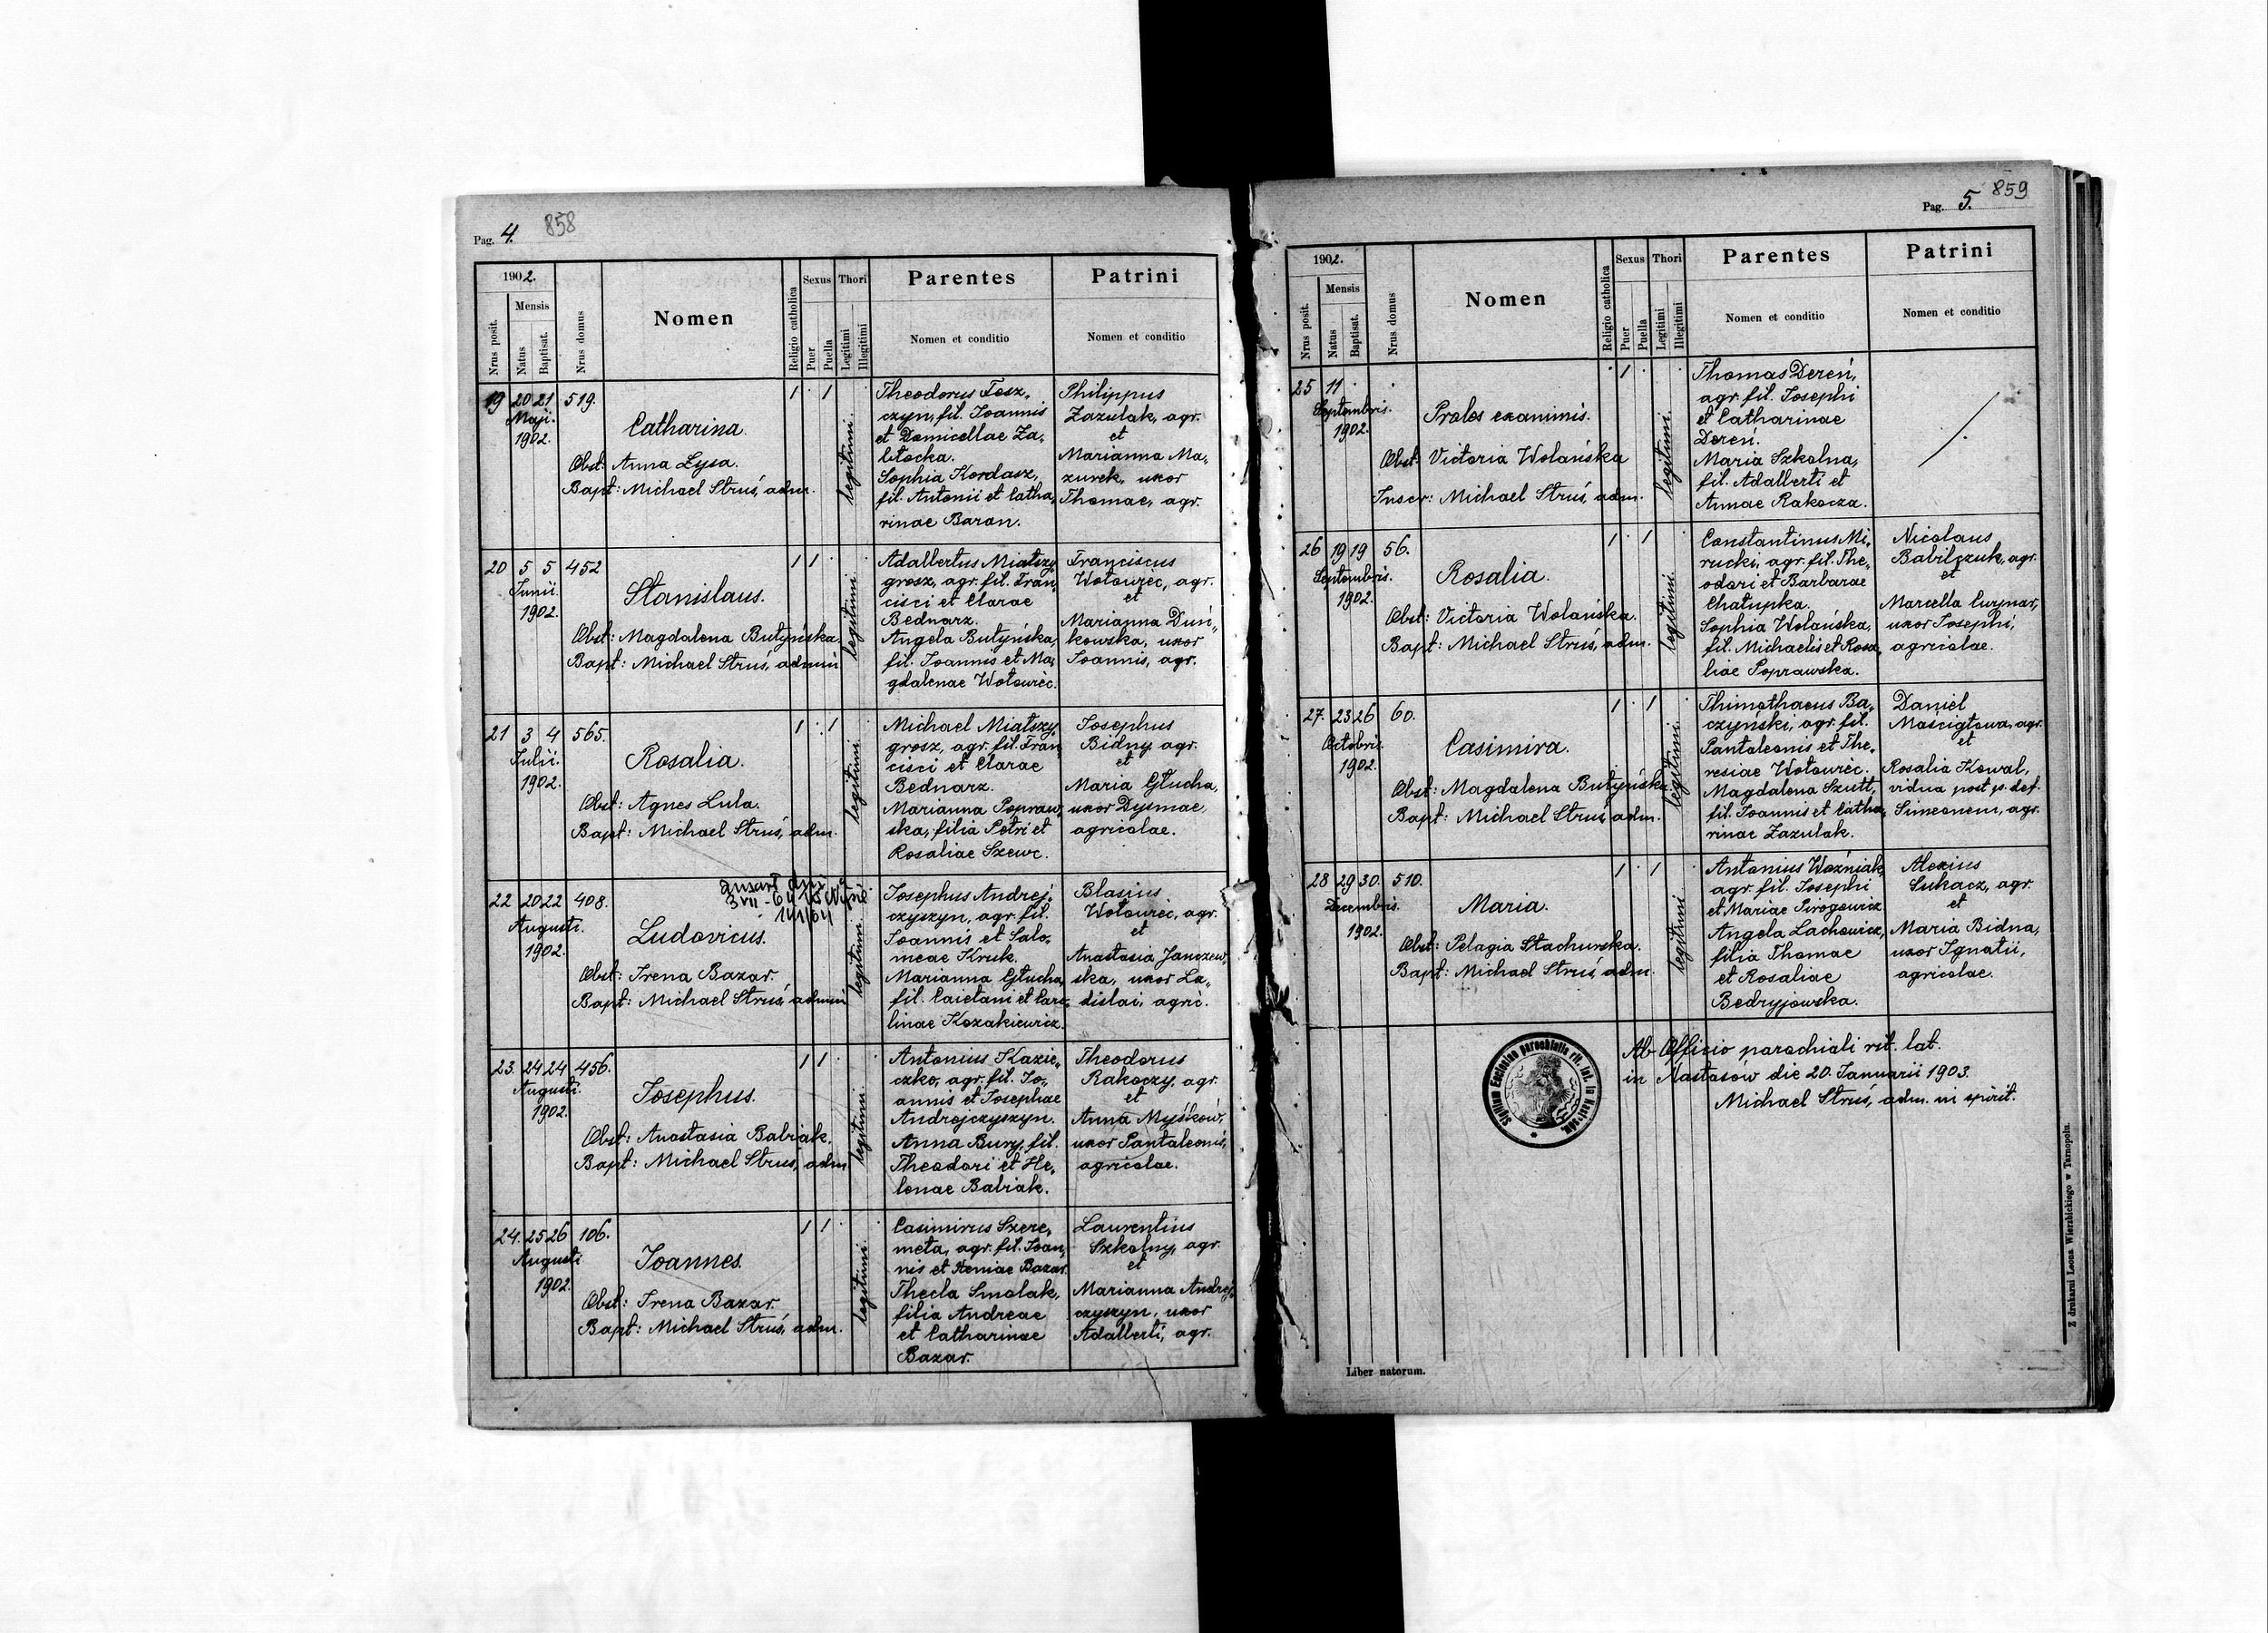 Pag. 4. 858
1902.
Nrus posit.
Mensis
Natus
Baptisat.
Nrus domus
Nomen
Religio catholica
Sexus
Puer
Puella
Thori
Legitimi
Illegitimi
Parentes
Nomen et conditio
Patrini
Nomen et conditio
19 20 21 519.
Maji.
1902.
Catharina.
Obst: Anna Lysa.
Bapt: Michael Struś, adm.
legitimi.
Theodorus Tosz„
czyn, fil. Joannis
et Domicellae Za„
błocka.
Sophia Kordasz,
fil. Antonii et Catha„
rinae Baran.
Philippus
Zazulak, agr.
et
Marianna Ma„
zurek, uxor
Thomae, agr.
20 5 5 452
Junii.
1902.
Stanislaus.
Obst: Magdalena Butyńska.
Bapt: Michael Struś, admin
legitimi.
Adalbertus Miatszy„
grosz, agr. fil. Fran„
cisci et Clarae
Bednarz.
Angela Butyńska,
fil. Joannis et Ma„
gdalenae Wotowiéc.
Franciscus
Wotowiéc, agr.
et
Marianna Duń„
kowska, uxor
Joannis, agr.
21 3 4 565.
Julii.
1902.
Rosalia.
Obst: Agnes Lula.
Bapt: Michael Struś, adm.
legitimi.
Michael Miatszy„
grosz, agr. fil. Fran„
cisci et Clarae
Bednarz.
Marianna Popraw„
ska, filia Petri et
Rosaliae Szewc.
Josephus
Bidny, agr.
et
Maria Głucha,
uxor Dysmae
agricolae.
22 20 22 408.
Augusti.
1902.
3 VII - 64
141/64
Ludovicus.
Obst: Irena Bazar.
Bapt: Michael Struś, admin
legitimi.
Josephus Andrej„
czyszyn, agr. fil.
Joannis et Salo„
meae Kruk.
Marianna Głucha,
fil. Caietani et Caro„
linae Kozakiewicz.
Blasius
Wotowiéc, agr.
et
Anastasia Janczew„
ska, uxor La„
dislai, agric.
23. 24 24 456.
Augusti.
1902.
Josephus.
Obst: Anastasia Babiak.
Bapt: Michael Struś, adm.
legitimi.
Antonius Kazie„
czko, agr. fil. Jo„
annis et Josephae
Andrejczyszyn.
Anna Bury, fil.
Theodori et He„
lenae Babiak.
Theodorus
Rakoczy, agr.
et
Anna Myśków,
uxor Pantaleonis,
agricolae.
24. 25 26 106.
Augusti
1902.
Joannes.
Obst: Irena Bazar.
Bapt: Michael Struś, adm.
legitimi.
Casimirus Szere„
meta, agr. fil. Joan„
nis et Xeniae Bazar.
Thecla Smolak,
filia Andreae
et Catharinae
Bazar.
Laurentius
Szkolny, agr.
et
Marianna Andrej„
czyszyn, uxor
Adalberti, agr.
Pag. 5. 859
1902.
Nrus posit.
Mensis
Natus
Baptisat.
Nrus domus
Nomen
Religio catholica
Sexus
Puer
Puella
Thori
Legitimi
Illegitimi
Parentes
Nomen et conditio
Patrini
Nomen et conditio
25 11
Septembris.
1902.
Proles exanimis.
Obst: Victoria Wolańska
Inscr: Michael Struś, adm.
legitimi.
Thomas Dereń,
agr. fil. Josephi
et Catharinae
Dereń.
Maria Szkolna,
fil. Adalberti et
Annae Rakocza.
26 19 19 56.
Septembris.
1902.
Rosalia.
Obst: Victoria Wolańska.
Bapt: Michael Struś, adm.
legitimi.
Constantinus Mi„
rucki, agr. fil. The„
odori et Barbarae
Chatupka.
Sophia Wolańska,
fil. Michaelis et Rosa„
liae Poprawska.
Nicolaus
Babilczuk, agr.
et
Marcella Curynar,
uxor Josephi,
agricolae.
27. 23 26 60.
Octobris.
1902.
Casimira.
Obst: Magdalena Butyńska.
Bapt: Michael Struś, adm.
legitimi.
Thimothaeus Ba„
czyński, agr. fil.
Pantaleonis et The„
resiae Wotowiéc.
Magdalena Szutt,
fil. Joannis et Catha„
rinae Zazulak.
Daniel
Maścigłowa, agr.
et
Rosalia Kowal,
vidua post p. def.
Simeonem, agr.
28 29 30. 510.
Decembris.
1902.
Maria.
Obst: Pelagia Stachurska.
Bapt: Michael Struś, adm.
legitimi
Antonius Woźniak,
agr. fil. Josephi
et Mariae Pirogowicz
Angela Lachowicz,
filia Thomae
et Rosaliae
Bedryjowska.
Alexius
Suhacz, agr.
et
Maria Bidna,
uxor Ignatii,
agricolae.
Sigillum Ecclesiae parochialis rit. lat. in Nastasów.
Ab Officio parochiali rit. lat.
in Nastasów die 20. Januarii 1903.
Michael Struś, adm. in spirit.
Liber natorum.
Z drukarni Leona Wierzbickiego w Tarnopolu.